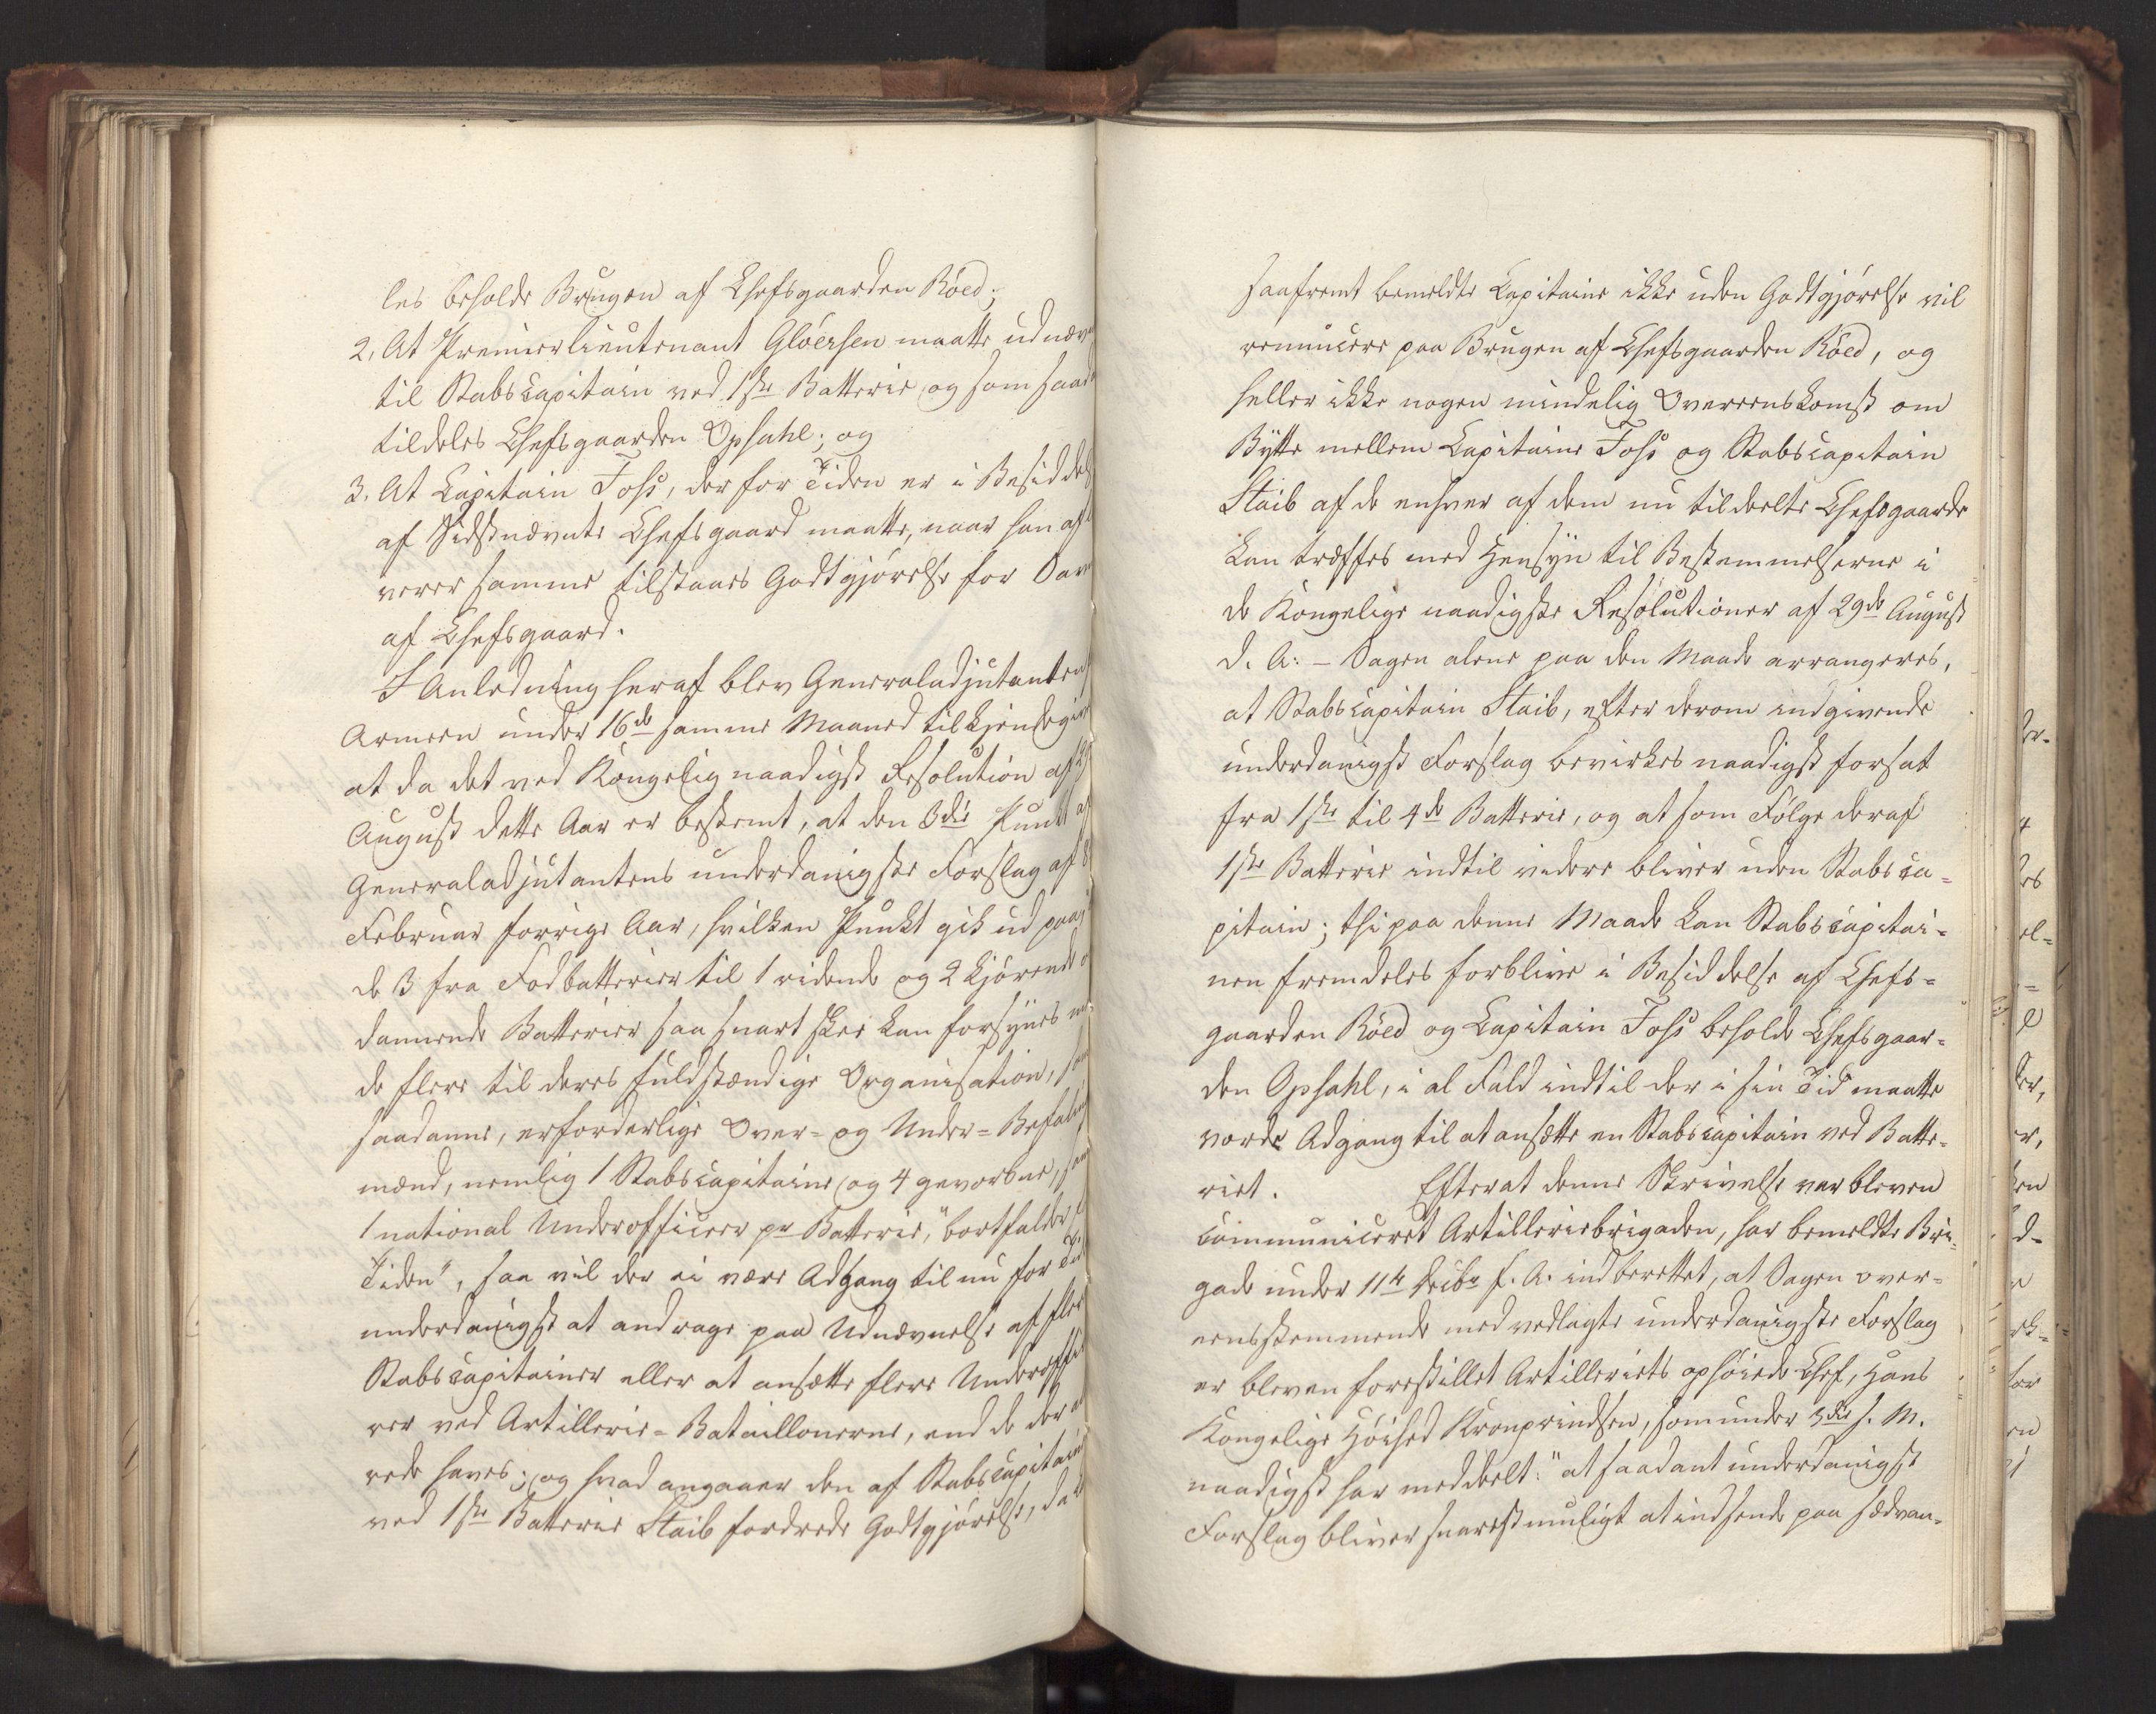 les beholde Brugen af Chefsgaarden Röed;
2. At Premierlieutenant Glöersen maatte udnæv
til Stabscapitain ved 1ste Batterie og som saad
tildeles Chefsgaarden Opsahl; og
3. At Capitain Foss, der for Tiden er i Besiddel
af Sidstnævnte Chefsgaard maatte, naar han afl
verer samme tilstaaes Godtgjörelse for Savn
af Chefsgaard.
I Anledning heraf blev Generaladjutanten
Armeen under 16de samme Maaned tilkjendegiv
at da det ved Kongelig naadigst Resolution af 29
August dette Aar er bestemt, at den 3die Punkt af
Generaladjutantens underdanigste Forslag af 8
Februar forrige Aar, hvilken Punkt gik ud paa,
de 3 fra Fodbatterier til 1 ridende og 2 kjörende o
dannende Batterier saa snart skee kan forsynes m
de flere til deres fuldstændige Organisation, som
saadanne, erforderlige Over- og Under-Befalings
mænd, nemlig 1 Stabscapitaine og 4 gevorbne, sam
1 national Underofficeer pr Batterie, "bortfalder f
Tiden", saa vil der ei være Adgang til nu for Tid
underdanigst at andrage paa Udnævnelse af fler
Stabscapitainer eller at ansætte flere Underoffi
rer ved Artillerie-Bataillonerne, end de der al
rede haves; og hvad angaaer den af Stabscapitain
ved 1ste Batterie Staib fordrede Godtgjörelse, da
saafremt bemeldte Capitaine ikke uden Godtgjörelse vil
renuncere paa Brugen af Chefsgaarden Röed, og
heller ikke nogen mindelig Overeenskomst om
Bytte mellem Capitaine Foss og Stabscapitain
Staib af de enhver af dem nu tildeelte Chefsgaarde
kan træffes med Hensyn til Bestemmelserne i
de Kongelige naadigste Resolutioner af 29de August
d. A: - Sagen alene paa den Maade arrangeres,
at Stabscapitain Staib, efter derom indgivende
underdanigst Forslag bevirkes naadigst forsat
fra 1ste til 4de Batterie, og at som Fölge deraf
1ste Batterie indtil videre bliver uden Stabsca-
pitain; thi paa denne Maade kan Stabscapitai-
nen fremdeles forblive i Besiddelse af Chefs-
gaarden Röed og Capitain Foss beholde Chefsgaar-
den Opsahl, i al Fald indtil der i sin Tid maatte
vorde Adgang til at ansætte en Stabscapitain ved Batte-
riet. Efterat denne Skrivelse var bleven
communiceret Artilleriebrigaden, har bemeldte Bri-
gade under 11te Decbr f. A. indberettet, at Sagen over-
eensstemmende med vedlagte underdanigste Forslag
er bleven forestillet Artilleriets ophöiede Chef, Hans
Kongelige Höihed Kronprindsen, som under 3die s. M.
naadigst har meddeelt: "at saadant underdanigst
Forslag bliver snarest muligt at indsende paa sædvan-